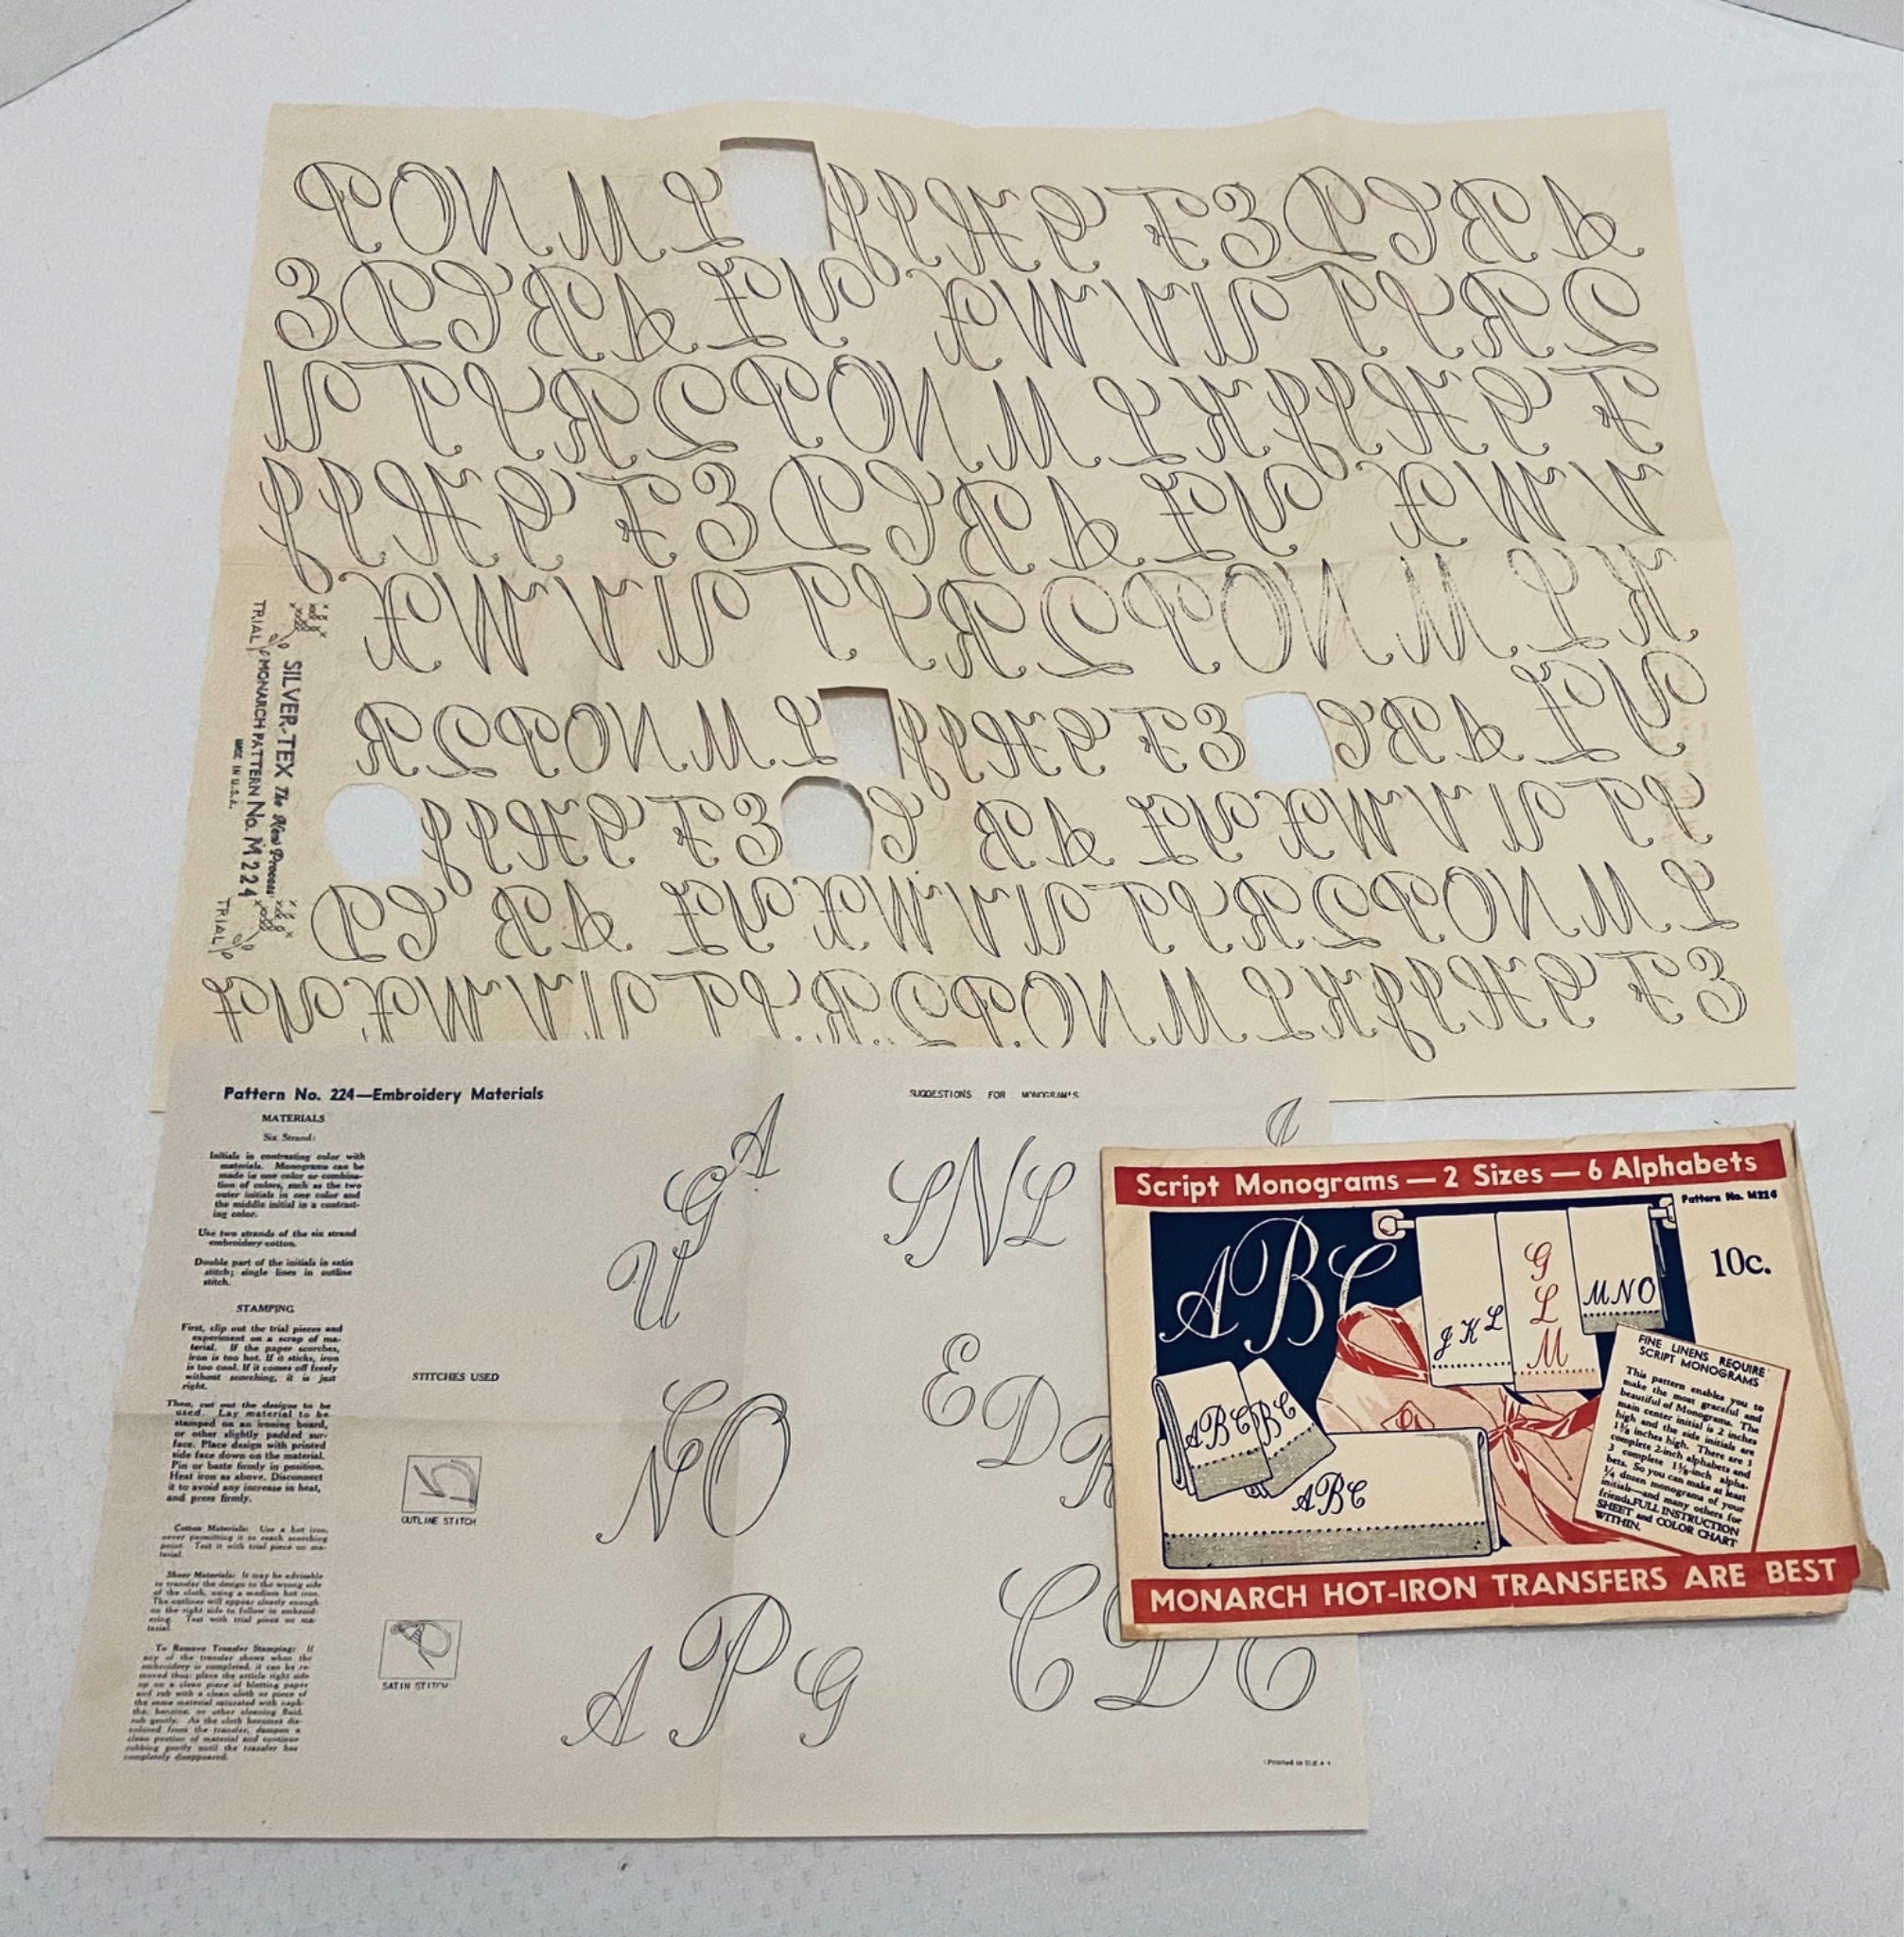 A B C D E F G H I J L M N O P
Q R S T U V W X Y Z A B C D E
F G H I J K L M N O P Q R S T U
V W X Y Z A B C D E F G H I J
K L M N O P Q R S T U V W X
Y Z A B C E F G H I J L M N O P Q R
S T U V W X Y Z A B C E F G H I J
L M N O P Q R S T U V W X Y Z A B C D
E F G H I J K L M N O P Q R S T U V W X Y Z
TRIAL
SILVER-TEX The New Process
MONARCH PATTERN No. M224
MADE IN U.S.A.
TRIAL
Pattern No. 224—Embroidery Materials
MATERIALS
Six Strand:
Initials in contrasting color with
materials. Monograms can be
made in one color or combina-
tion of colors, such as the two
outer initials in one color and
the middle initial in a contrast-
ing color.
Use two strands of the six strand
embroidery cotton.
Double part of the initials in satin
stitch; single lines in outline
stitch.
STAMPING
First, clip out the trial pieces and
experiment on a scrap of ma-
terial. If the paper scorches,
iron is too hot. If it sticks, iron
is too cool. If it comes off freely
without scorching, it is just
right.
Then, cut out the designs to be
used. Lay material to be
stamped on an ironing board,
or other slightly padded sur-
face. Place design with printed
side face down on the material.
Pin or baste firmly in position.
Heat iron as above. Disconnect
it to avoid any increase in heat,
and press firmly.
Cotton Materials: Use a hot iron,
never permitting it to reach scorching
point. Test it with trial piece on ma-
terial.
Sheer Materials: It may be advisable
to transfer the design to the wrong side
of the cloth, using a medium hot iron.
The outlines will appear clearly enough
on the right side to follow in embroid-
ering. Test with trial piece on ma-
terial.
To Remove Transfer Stamping: If
any of the transfer shows when the
embroidery is completed, it can be re-
moved thus: place the article right side
up on a clean piece of blotting paper
and rub with a clean cloth or piece of
the same material saturated with naph-
tha, benzine, or other cleaning fluid,
rub gently. As the cloth becomes dis-
colored from the transfer, dampen a
clean portion of material and continue
rubbing gently until the transfer has
completely disappeared.
STITCHES USED
OUTLINE STITCH
SATIN STITCH
SUGGESTIONS FOR MONOGRAMS
A
G
U
SNL
NCO
E
D
R
APG
CDC
Printed in U.S.A.
Script Monograms — 2 Sizes — 6 Alphabets
Pattern No. M224
10c.
ABC
JKL
G
L
M
MNO
ABC
BC
ABC
FINE LINENS REQUIRE
SCRIPT MONOGRAMS
This pattern enables you to
make the most graceful and
beautiful of Monograms. The
main center initial is 2 inches
high and the side initials are
1½ inches high. There are 3
complete 2-inch alphabets and
3 complete 1½-inch alpha-
bets. So you can make at least
½ dozen monograms of your
initials—and many others for
friends. FULL INSTRUCTION
SHEET and COLOR CHART
WITHIN.
MONARCH HOT-IRON TRANSFERS ARE BEST